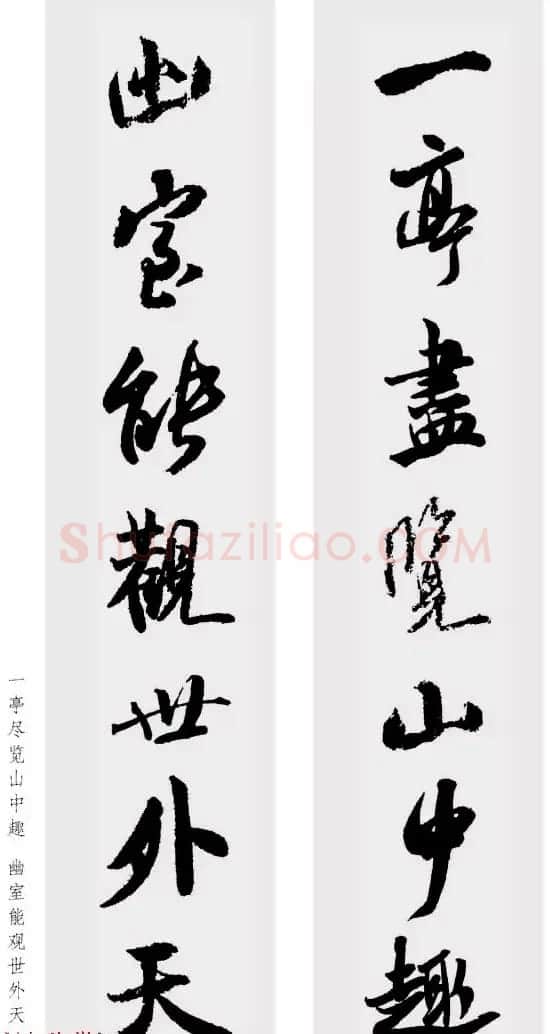 一亭盡覽山中趣
幽室能觀世外天
一亭尽览山中趣 幽室能观世外天
Shufaziliao.com